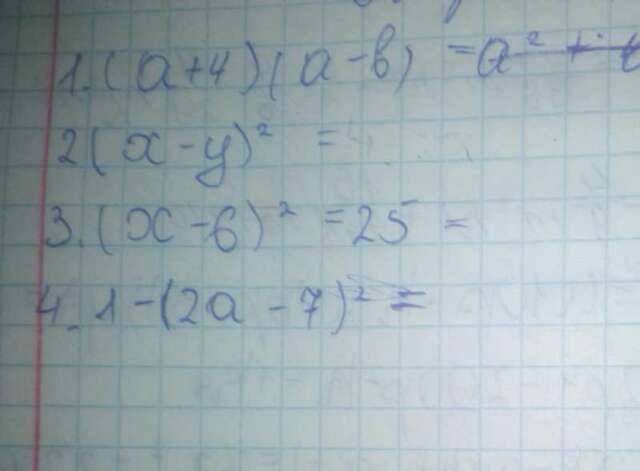 1. (a+4)(a-b) = a² +
2 (x-y)² =
3. (x-6)² = 25 =
4. 1-(2a-7)² =